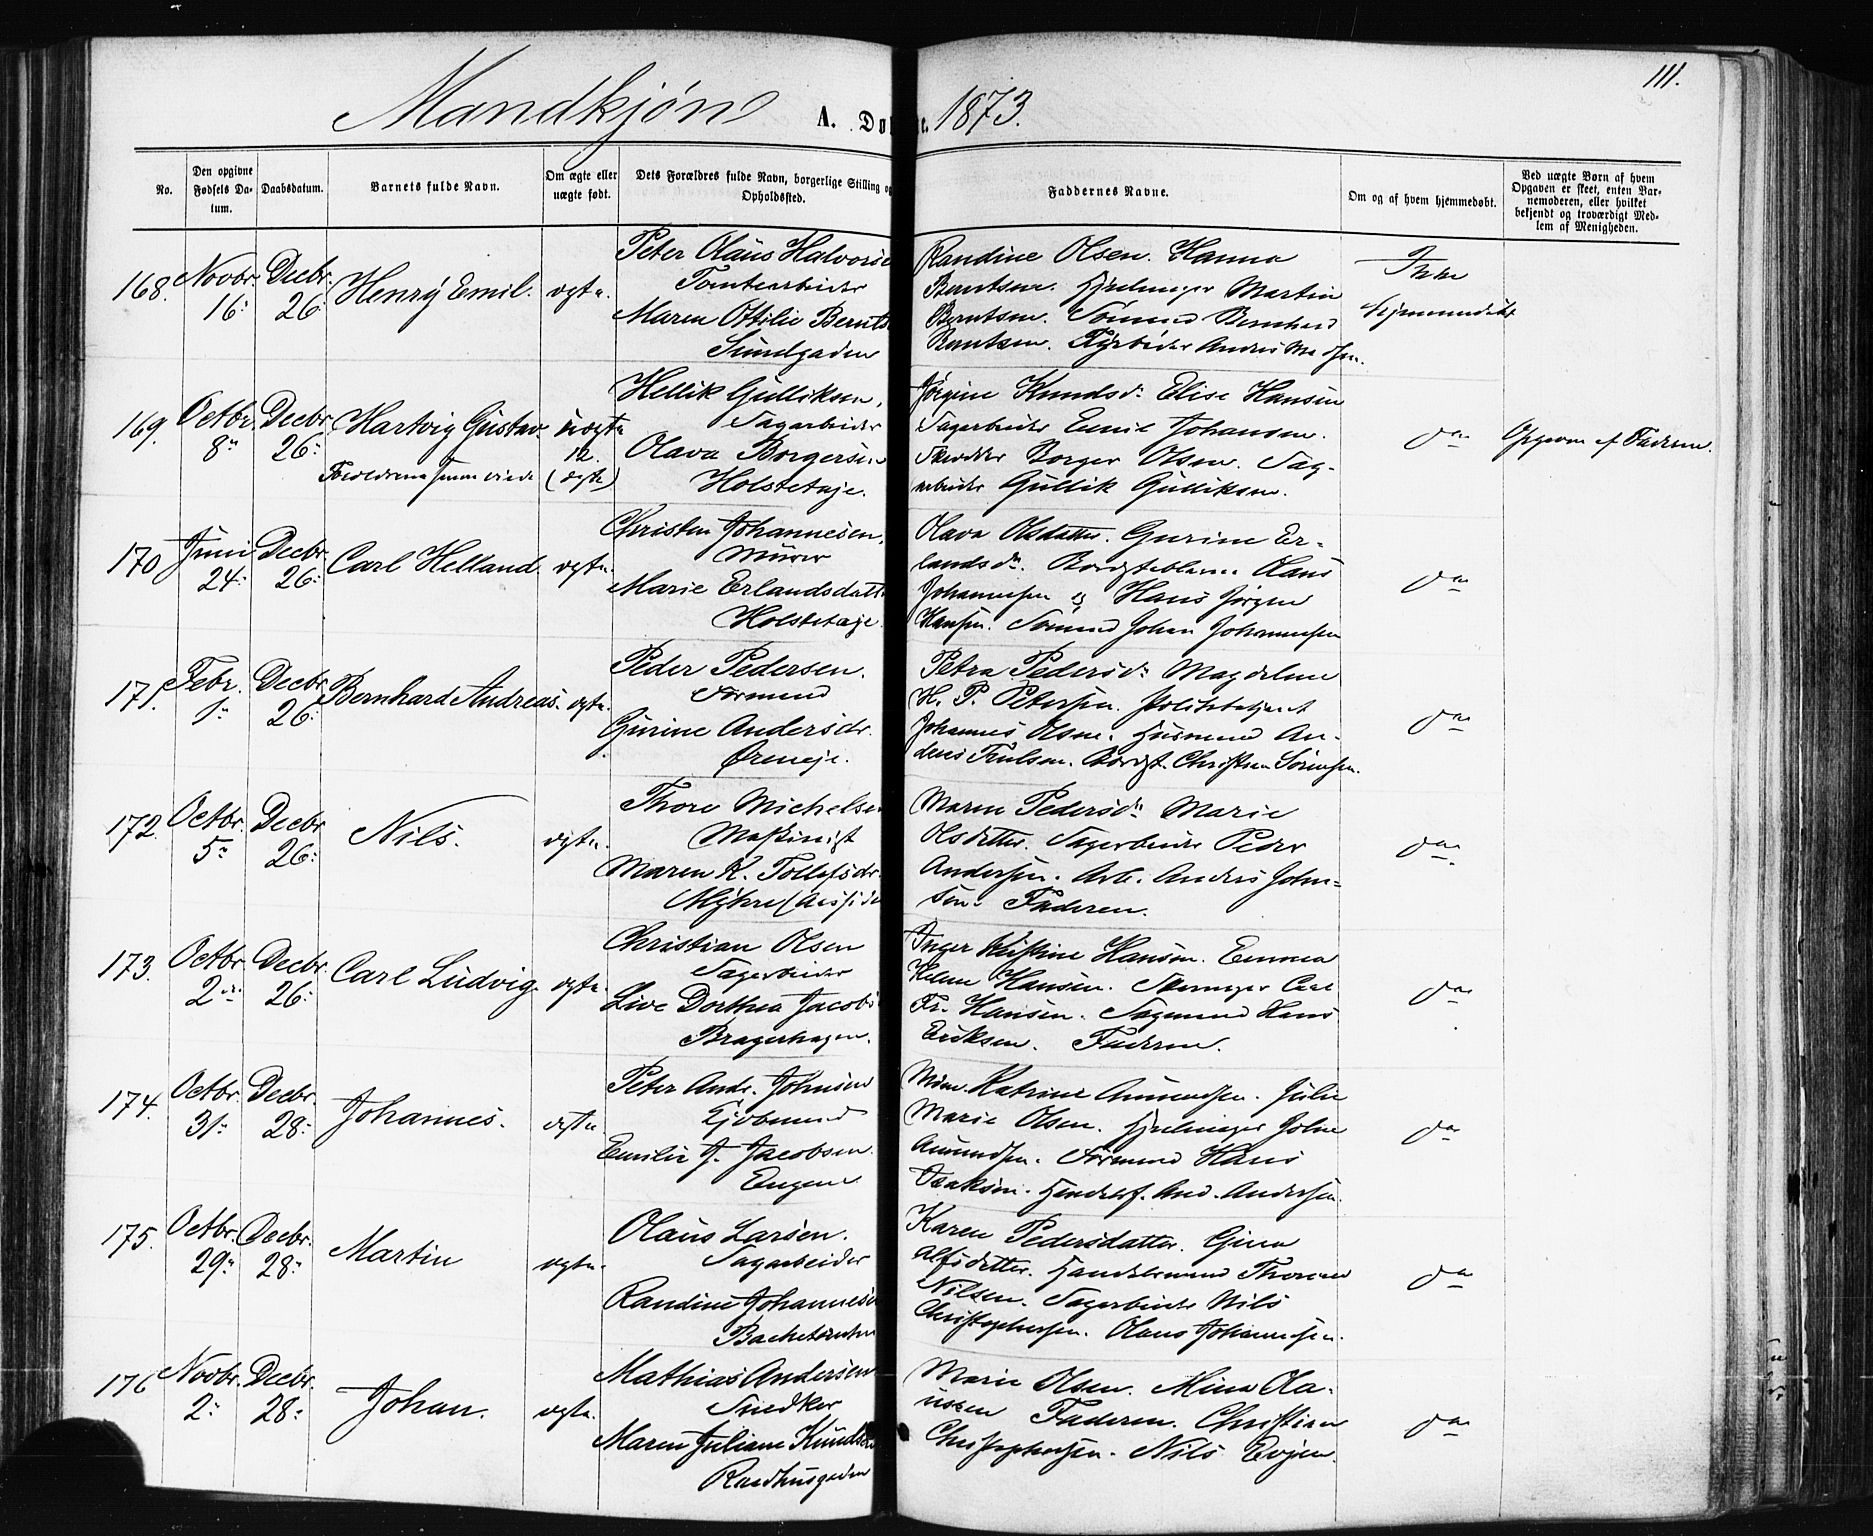 111.
Mandkjøn A. Dø 1873.
No.
Den opgivne Fødsels Da-
tum.
Daabsdatum.
Barnets fulde Navn.
Om ægte eller
uægte født.
Dets Forældres fulde Navn, borgerlige Stilling og
Opholdssted.
Faddernes Navne.
Om og af hvem hjemmedøbt.
Ved uægte Børn af hvem
Opgaven er skeet, enten Bar-
nemoderen, eller hvilket
bekjendt og troværdigt Med-
lem af Menigheden.
168. Novbr. 16: Decbr. 26: Henrÿ Emil. ægte.
Peter Olaüs Halvorse
Tomtearbeider
Maren Ottilie Bernts
Sündgaden
Randine Olsen. Hanna
Berntsen. Martin
Berntsen. Bernhard
Berntsen. Fÿrbøder Andreas Madsen.
Ikke
hjemmedøbt
169. Octbr. 8: Decbr. 26: Hartvig Güstav. üægte
12.
Forældrene senere viede (ægte)
Hellik Gülliksen,
Sagarbeider
Olava Borgersen
Holstetøje.
Jørgine Knudsdr. Elise Hansen
Sagarbeider Emil Johansen.
Borger Olsen. Sag-
arbeider Güllik Gülliksen.
do
Opgaven af Faderen.
170 Juni 24: Decbr. 26: Carl Helland. ægte.
Christen Johannesen,
Mürer
Marie Erlandsdatt
Holstetøje.
Olava Olsdatter. Gurine Er-
landsdr. Olaus
Johannesen og Hans Jørgen
Hansen. Sømand Johan Johannesen
do
171. Febr. Decbr. 26: Bernhard Andreas. ægte.
Peder Pedersen.
Formand
Gürine Andersdr.
Øreneje.
Petra Pedersdr. Magdalene
H. P. Petersen. Politibetjent
Johannes Olsen. Husmand An-
ders Trulsen. Christian Sørensen.
do
172. Octbr. 5: Decbr. 26: Nils. ægte.
Thore Michelsen
Maskinist
Maren K. Tollefsdr.
Mÿhre (Aassiden
Maren Pedersdr. Marie
Olsdatter. Sagarbeider Peder
Andersen. Arb. Anders John-
sen. Faderen.
do
173. Octbr. 2: Decbr. 26: Carl Lüdvig. ægte.
Christian Olsen
Sagarbeider
Live Dorthea Jacobs
Bragerhagen.
Inger Kristine Hansen. Emma
Helene Hansen. Carl
Fr. Hansen. Sagmand Hans
Eriksen. Faderen.
do
174. Octbr. 31: Decbr. 28: Johannes. ægte.
Peter Andr. Johnsen
Kjøbmand
Emilie J. Jacobsen.
Engene
Katrine Amundsen. Julie
Marie Olsen. John
Amundsen. Formand Hans
Isaksen. Handelsf. And. Andersen.
do
175. Octbr. 29: Decbr. 28: Martin ægte.
Olaüs Larsen.
Sagarbeider
Randine Johannese
Karen Pedersdatter. Gina
Alfsdatter. Handelsmand
Nilsen. Sagarbeider Nils
Christophersen. Olaus Johannesen.
do
176 Novbr. 2: Decbr. 28: Johan. ægte.
Mathias Andersen
Snedker
Maren Juliane Knuds
Raadhusgaden
Marie Olsen. Mina Ola-
ussen Faderen. Christian
Christophersen. Nils Evjen.
do